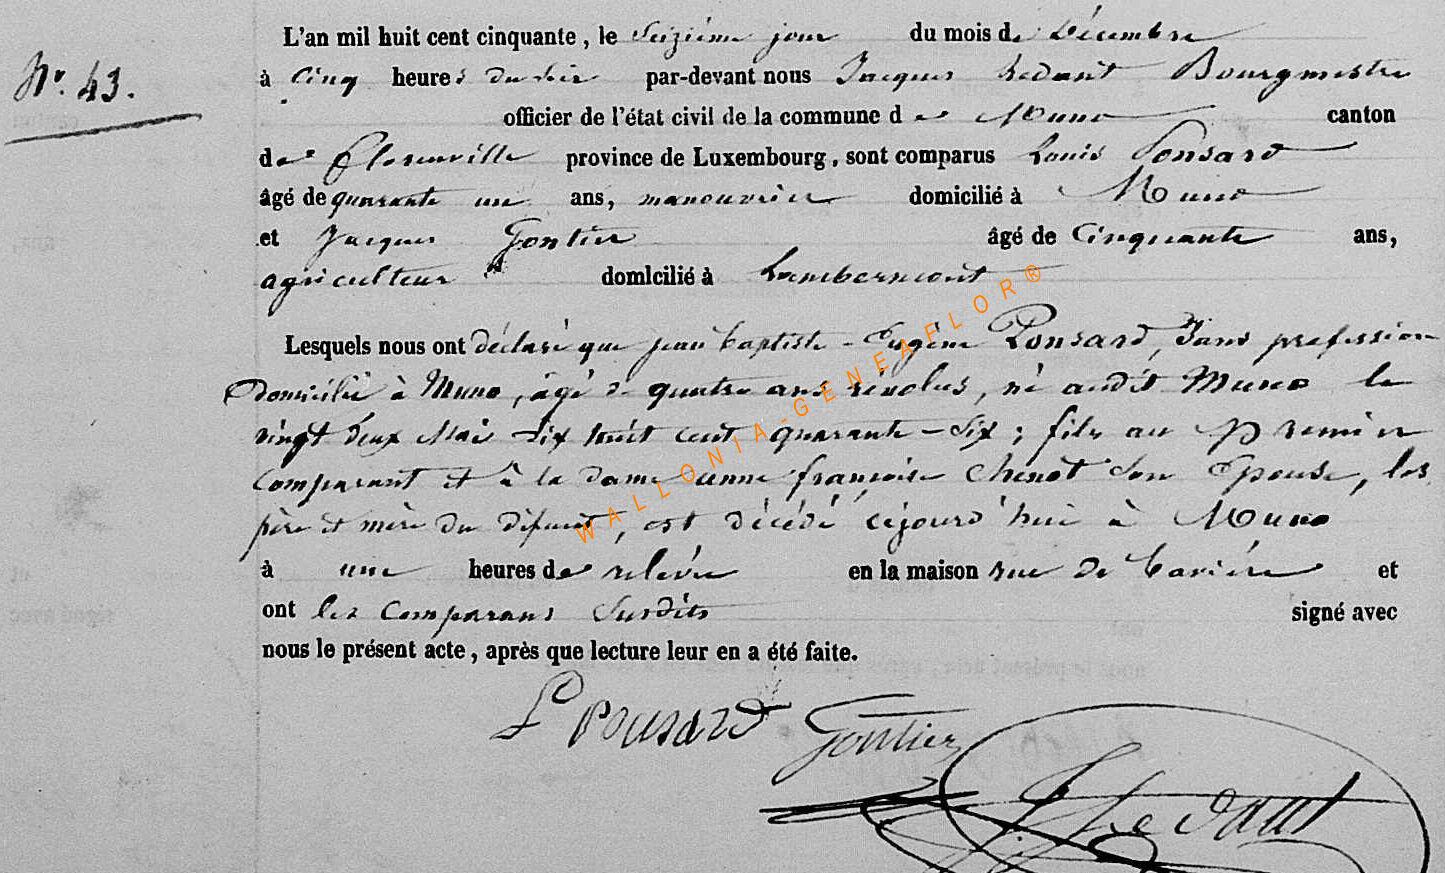 L'an mil huit cent cinquante, le Seizième jour du mois de Décembre
N.º 43.
à Cinq heures du soir par-devant nous Jacques Ledant Bourgmestre
officier de l'état civil de la commune de Muno canton
de Florenville province de Luxembourg, sont comparus Louis Ponsard
âgé de quarante un ans, manouvrier domicilié à Muno
et Jacques Gontier âgé de Cinquante ans,
agriculteur domicilié à Lambermont
Lesquels nous ont déclaré que jean baptiste - Eugène Ponsard, Sans profession
Domicilié à Muno, âgé de quatre ans révolus, né audit Muno le
vingt deux Mai dix huit cent quarante - Six ; fils au premier
comparant et à la dame anne françoise Chenot Son Epouse, les
père et mère du défunt, est décédé cejourd'hui à Muno
à une heures de relevée en la maison rue de et
ont les comparans Susdits signé avec
nous le présent acte, après que lecture leur en a été faite.
L Ponsard Gontier
J Ledant
WALLONIA-GENEAFLOR®